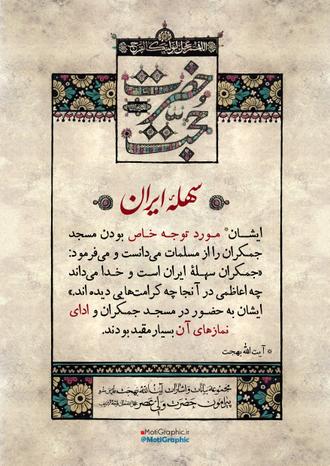 اللهم عجل لولیک الفرج
حضرت حجت
سهلهٔ ایران
ایشان* مورد توجه خاص بودن مسجد
جمکران را از مسلمات می‌دانست و می‌فرمود:
«جمکران سهلهٔ ایران است و خدا می‌داند
چه اعاظمی در آنجا چه کرامت‌هایی دیده‌اند.»
ایشان به حضور در مسجد جمکران و ادای
نمازهای آن بسیار مقید بودند.
* آیت الله بهجت
مجموعه بیانات و اشارات آیت الله بهجت
پیرامون حضرت ولی عصر
MotiGraphic.ir
@MotiGraphic